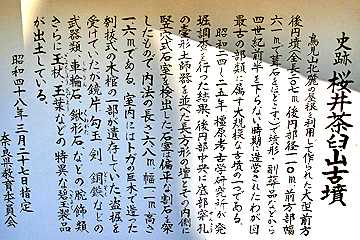 史跡 桜井茶臼山古墳
鳥見山北麓の尾根を利用して作られた大型前方
後円墳全長二〇七m後円部径一一〇m前方部幅
六一mで葺石をほどこす。立地、形状、副葬品などから
四世紀前半を下らない時期に築造されたわが国
最古の部類に属す大規模な古墳の一つである。
昭和二四〜二五年橿原考古学研究所が発
掘調査を行った結果、後円部中央に底部穿孔
の壷形土師器を並べた長方形の壇とその内側に
竪穴式石室を検出した。石室は偏平な割石を突
したもので内法の長さ六八m幅一二m高さ
一六mである。室内にはトガの巨木で造った
刳抜式の木棺の一部が遺存していた。盗掘を
受けていたが鏡片、勾玉、剣、銅鏃などの
武器類、車輪石、鍬形石などの腕飾類
さらに玉杖、玉葉などの特異な碧玉製品
が出土している。
昭和四十八年三月二十七日指定
奈良県教育委員会